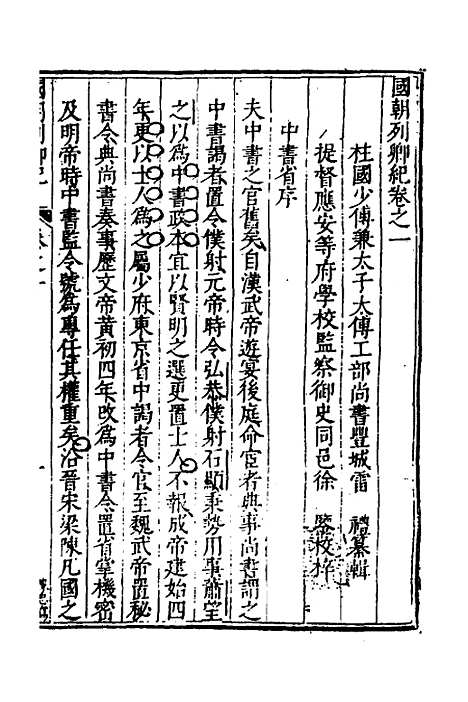 國朝列卿紀卷之一
柱國少傅兼太子太傅工部尚書豐城雷 禮纂輯
提督應安等府學校監察御史同邑徐 鑒校梓
中書省序
夫中書之官舊矣自漢武帝遊宴後庭命宦者典事尚書謂之
中書謁者置令僕射元帝時令弘恭僕射石顯秉勢用事蕭望
之以爲中書政本宜以賢明之選更置士人不報成帝建始四
年更以士人爲之屬少府東京省中謁者令官至魏武帝置秘
書令典尚書奏事歷文帝黃初四年改爲中書令置省掌機密
及明帝時中書監令號爲專任其權重矣沿晉宋梁陳凡國之
國朝列卿紀 卷之一